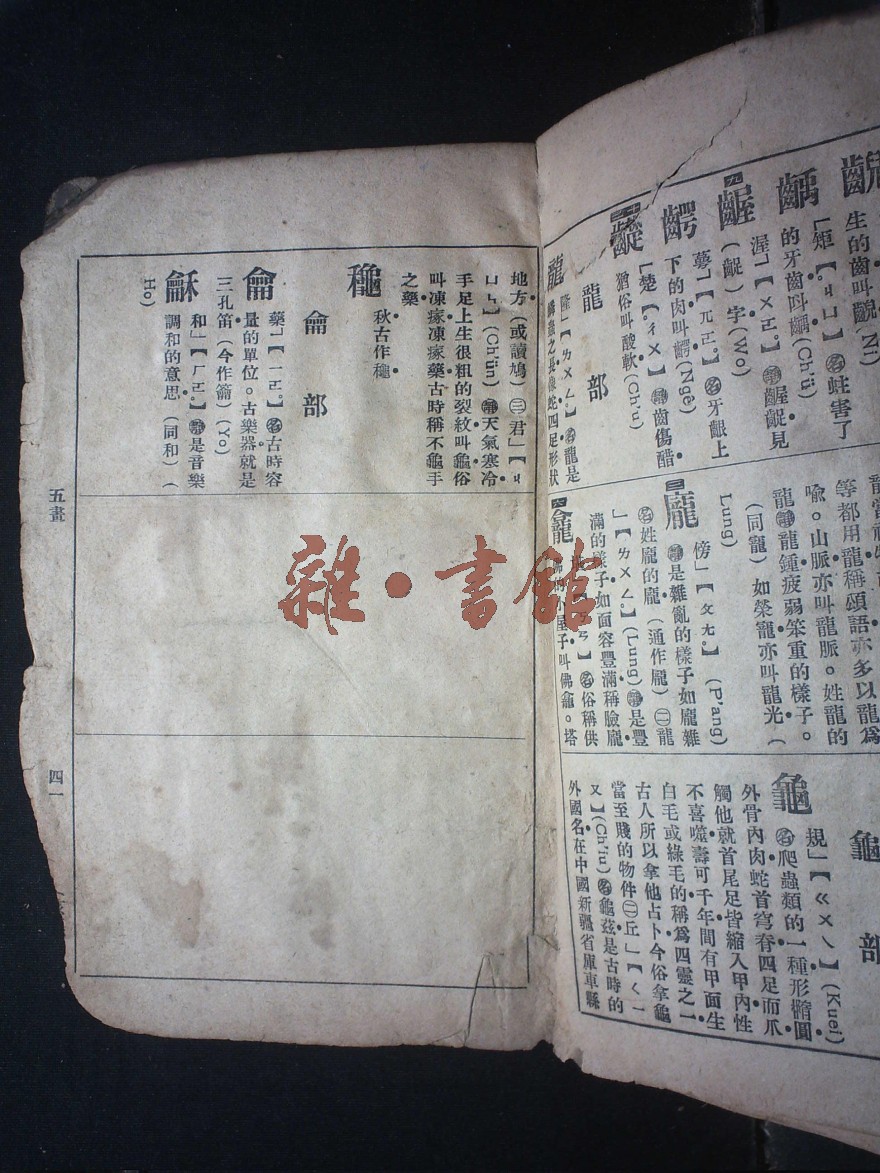 生的齒叫齯(Ni)
齲
「矩」【ㄐㄩ】㊔蛀害了
的牙齒叫齲(Chü)
五
齷
渥」【ㄨㄛ】齷齪見
(齪)字(Wo)
齶
萼」【兀ㄛ】㊔牙齦上
下的肉叫齶(Ngê)
齼
「楚【ㄔㄨ】齒傷醋
猶俗叫酸軟(Ch'u)
龍部
龍
隆」【ㄌㄨㄥ】㊔龍是
鱗蟲之長像蛇四足形狀
等都用龍稱頌語亦多以龍爲
喩。山脈亦叫龍脈。姓龍的
龍龍鍾疲弱笨重的樣子。
(同寵)如榮寵亦叫龍光(
Lung)
三
龐
傍」【ㄆㄤ】(P'ang)
是雜亂的樣子如龐雜
名姓龐的龐(通作龎)㊁龍
」【ㄌㄨㄥ】(Lung)是豐
滿的樣子如面容豐滿稱臉龐
六
龕
名俗稱供
小屋子叫佛龕。塔
龜部
龜
規」【ㄍㄨㄟ】(Kuei)
名爬蟲類的一種形橢圓
外骨內肉蛇首穹脊四足而爪
觸他就首尾足皆縮入甲內性
不喜噬壽可千年間有甲面生
白毛或綠毛的稱爲四靈之一
古人所以拿他占卜今俗拿龜
當至賤的物件㊁丘」【ㄑㄧ
ㄡ】(Ch'iu)名龜玆是古時的
外國名在中國新疆省庫車縣
地方(或讀鳩)㊂君」【ㄐ
ㄩㄣ】(Chün)天氣寒冷
手足上生很粗的裂紋叫龜俗
叫凍瘃凍瘃藥古時稱不龜手
之藥
龝
秋古作穐
龠部
龠
藥」【ㄧㄛ】名古時容
量的單位。古樂器就是
三孔笛(今作籥)(Yo)
龢
和」【ㄏㄛ】是音樂
調和的意思(同和)(
Ho)
五畫
四一
雜·書館